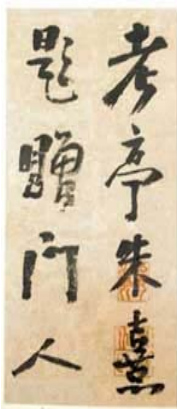 考亭朱熹
題贈門人